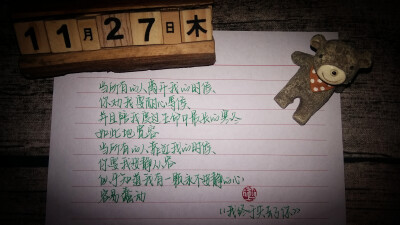 11月27日木
当所有的人离开我的时候
你劝我要耐心等候
并且陪我度过生命中最长的寒冬
如此地宽容
当所有的人靠近我的时候
你要我安静从容
似乎知道我有一颗永不安静的心
容易蠢动
《我终于失去了你》